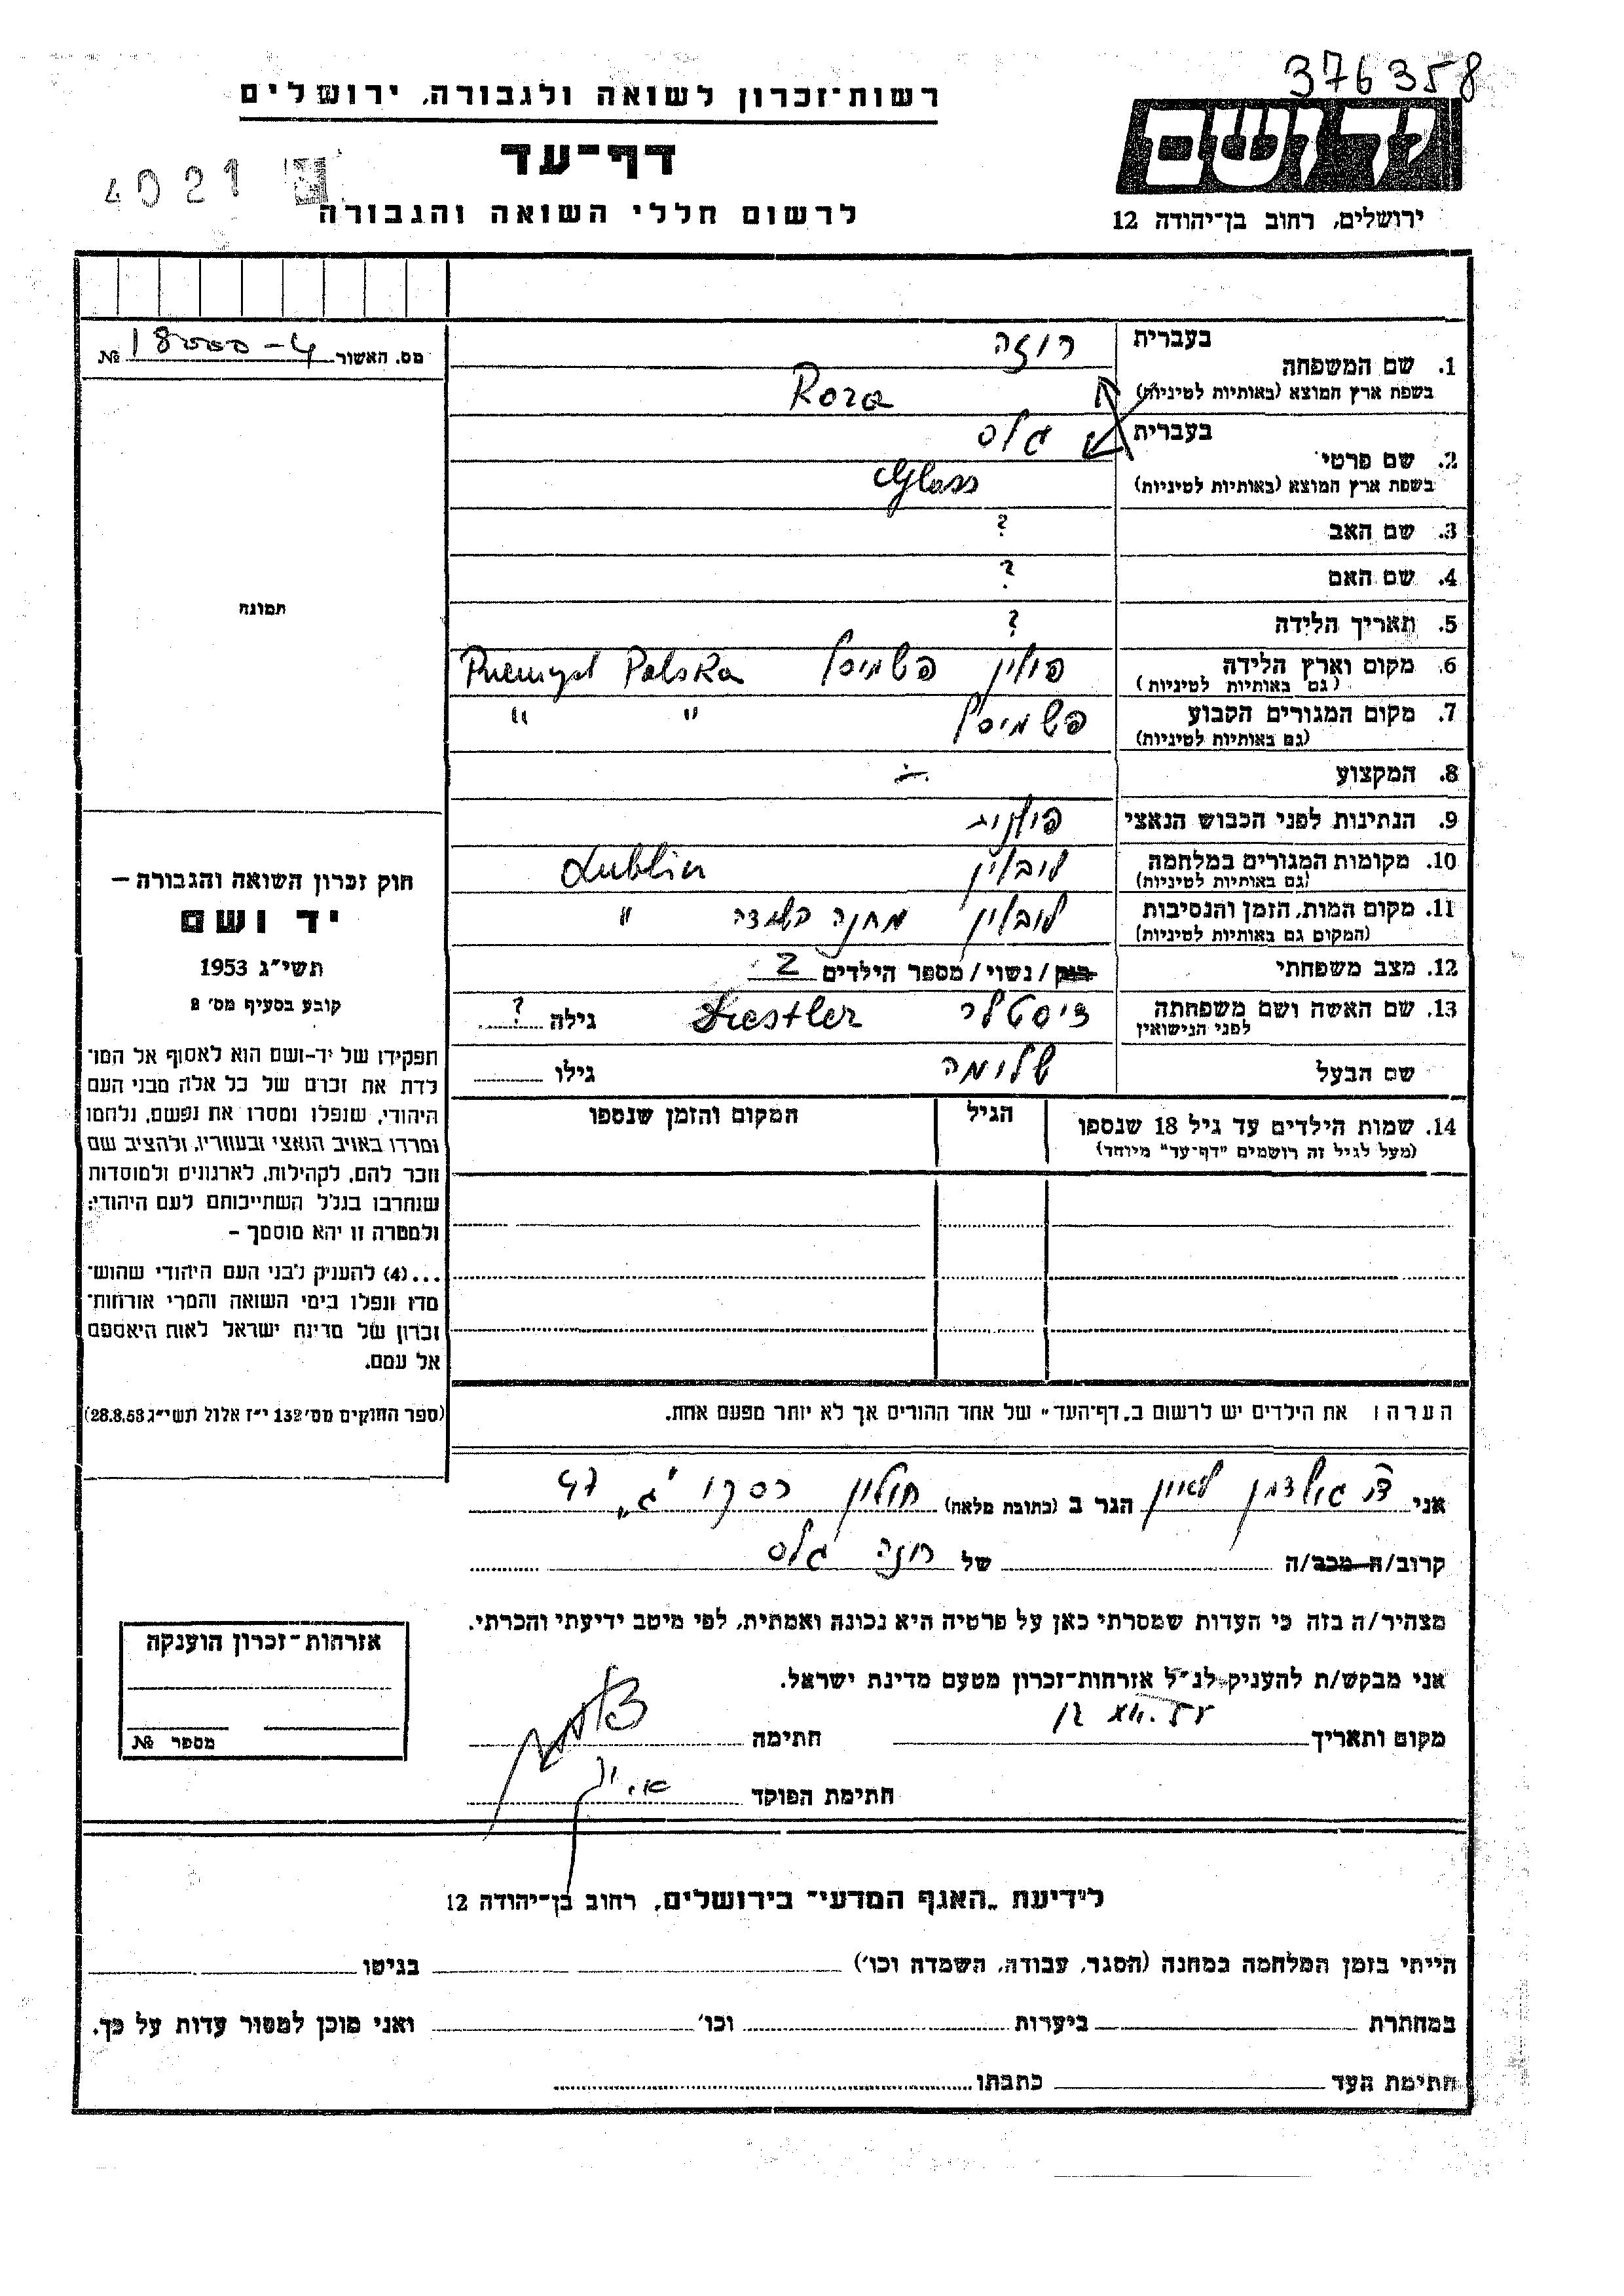 376358
רשות־זכרון לשואה ולגבורה, ירושלים
ידושם
דף־עד
4021
לרשום חללי השואה והגבורה
ירושלים, רחוב בן־יהודה 12
מס. האשור 18000-4 №
1. שם המשפחה
בעברית רוזה
בשפת ארץ המוצא (באותיות לטיניות) Roza
2. שם פרטי
בעברית גלס
בשפת ארץ המוצא (באותיות לטיניות) Glass
3. שם האב ?
4. שם האם ?
5. תאריך הלידה ?
6. מקום וארץ הלידה פולין פשמיסל Pšemysl Polska
(גם באותיות לטיניות)
7. מקום המגורים הקבוע פשמיסל " "
(גם באותיות לטיניות)
8. המקצוע
9. הנתינות לפני הכבוש הנאצי פולנית
10. מקומות המגורים במלחמה לובלין Lublin
(גם באותיות לטיניות)
11. מקום המות, הזמן והנסיבות לובלין מחנה השמדה "
(המקום גם באותיות לטיניות)
12. מצב משפחתי רוק / נשוי / מספר הילדים 2
13. שם האשה ושם משפחתה לפני הנישואין דיסטלר Diestler גילה ?
שם הבעל שלומה גילו
14. שמות הילדים עד גיל 18 שנספו הגיל המקום והזמן שנספו
(מעל לגיל זה רושמים "דף־עד" מיוחד)
תמונה
חוק זכרון השואה והגבורה —
יד ושם
תשי״ג 1953
קובע בסעיף מס׳ 2
תפקידו של יד-ושם הוא לאסוף אל המו־
לדת את זכרם של כל אלה מבני העם
היהודי, שנפלו ומסרו את נפשם, נלחמו
ומרדו באויב הנאצי ובעוזריו, ולהציב שם
וזכר להם, לקהילות, לארגונים ולמוסדות
שנחרבו בגלל השתייכותם לעם היהודי;
ולמטרה זו יהא מוסמך –
...(4) להעניק לבני העם היהודי שהוש־
מדו ונפלו בימי השואה והמרי אזרחות־
זכרון של מדינת ישראל לאות היאספם
אל עמם.
(ספר החוקים מס׳ 132 י״ז אלול תשי״ג 28.8.53)
הערה: את הילדים יש לרשום ב„דף־העד" של אחד ההורים אך לא יותר מפעם אחת.
אני הגר ב (כתובת מלאה) חולון רסקו ג' 47
קרוב/ה מכר/ה של רוזה גלס
מצהיר/ה בזה כי העדות שמסרתי כאן על פרטיה היא נכונה ואמתית, לפי מיטב ידיעתי והכרתי.
אני מבקש/ת להעניק לנ״ל אזרחות־זכרון מטעם מדינת ישראל.
מקום ותאריך חתימה
חתימת הפוקד
אזרחות־זכרון הוענקה
מספר №
לידיעת „האגף המדעי" בירושלים, רחוב בן־יהודה 12
הייתי בזמן המלחמה במחנה (הסגר, עבודה, השמדה וכו׳) בגיטו
במחתרת ביערות וכו׳ ואני מוכן למסור עדות על כך.
חתימת העד כתבתו